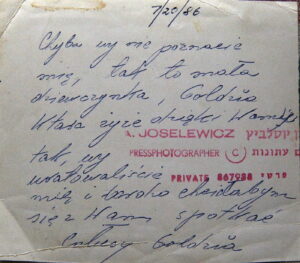 7/20/86
Chyba wy nie poznacie
mię, tak to mała
dziewczynka, Goldzia
która żyje dzięki Wam i
JOSELEWICZ
tak, wy
PRESSPHOTOGRAPHER C
uratowaliście
PRIVATE 867988 פרטי
mię i bardzo chciałabym
się z Wami spotkać
Goldzia